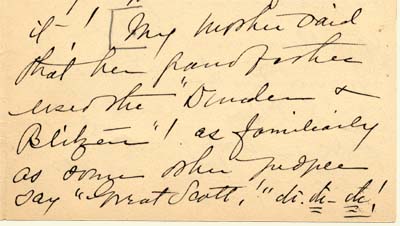 it-! [My mother said
that her grandfather
used the "Dunder &
Blitzen"! as familiarly
as some other people
say "Great Scott!" &c. &c - &c!